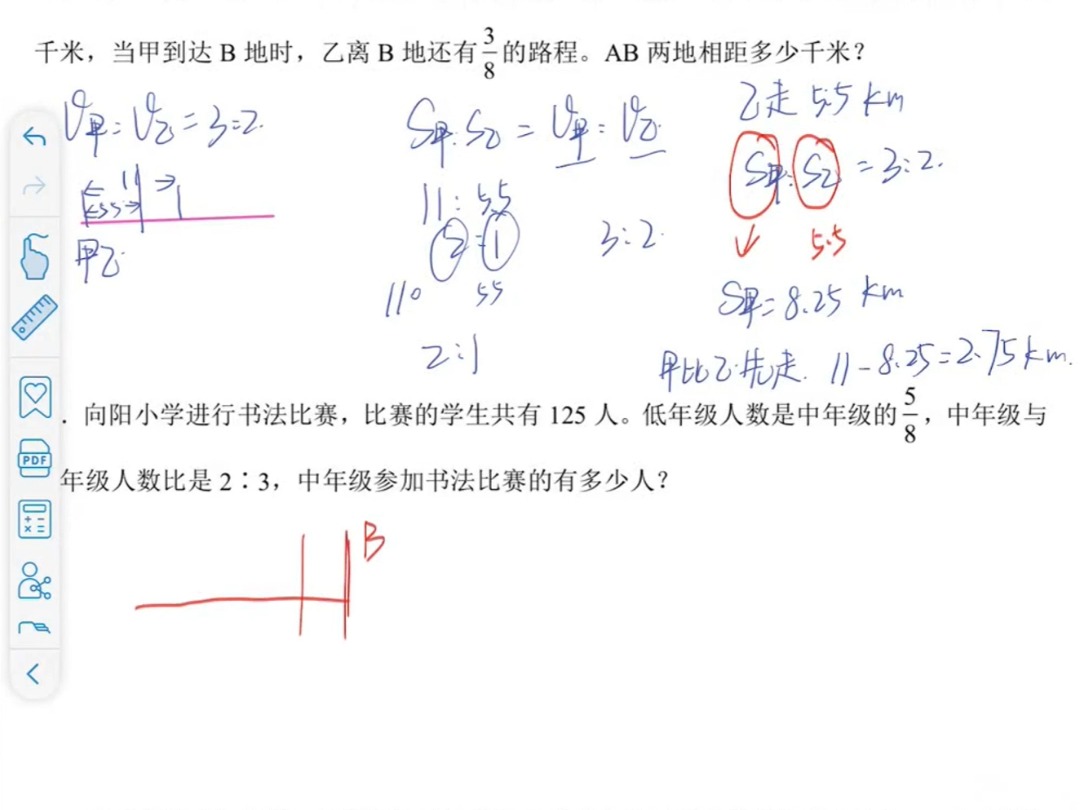 千米，当甲到达 B 地时，乙离 B 地还有 3/8 的路程。AB 两地相距多少千米？
V甲:V乙=3:2.
S甲:S乙=V甲:V乙.
乙走 5.5 km
S甲:S乙=3:2.
11
5.5
11:5.5
2:1
3:2.
5.5
甲乙.
110 55
S甲=8.25 km
2:1
甲比乙先走. 11-8.25=2.75km.
. 向阳小学进行书法比赛，比赛的学生共有 125 人。低年级人数是中年级的 5/8，中年级与
年级人数比是 2∶3，中年级参加书法比赛的有多少人？
B
PDF